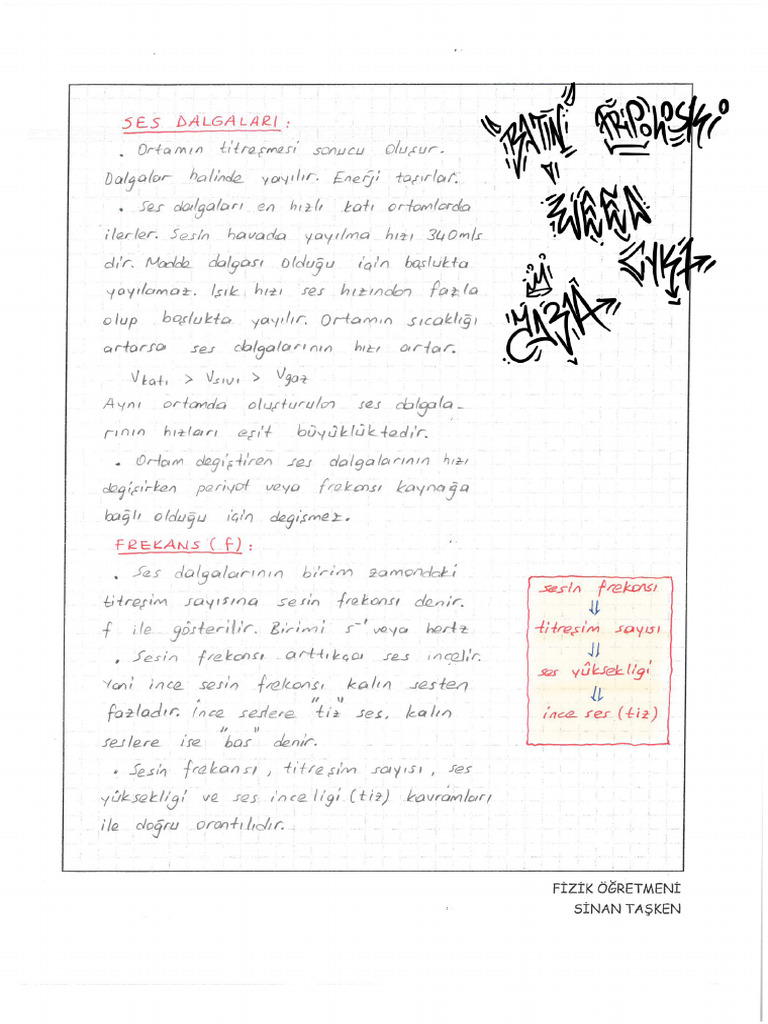 SES DALGALARI:
. Ortamın titreşmesi sonucu oluşur.
Dalgalar halinde yayılır. Enerji taşırlar.
. Ses dalgaları en hızlı katı ortamlarda
ilerler. Sesin havada yayılma hızı 340m/s
dir. Madde dalgası olduğu için boşlukta
yayılamaz. Işık hızı ses hızından fazla
olup boşlukta yayılır. Ortamın sıcaklığı
artarsa ses dalgalarının hızı artar.
Vkatı > Vsıvı > Vgaz
Aynı ortamda oluşturulan ses dalgala-
rının hızları eşit büyüklüktedir.
. Ortam değiştiren ses dalgalarının hızı
değişirken periyot veya frekansı kaynağa
bağlı olduğu için değişmez.
FREKANS (f):
. Ses dalgalarının birim zamandaki
titreşim sayısına sesin frekansı denir.
f ile gösterilir. Birimi s⁻¹ veya hertz
. Sesin frekansı arttıkça ses incelir.
Yani ince sesin frekansı kalın sesten
fazladır. İnce seslere "tiz" ses, kalın
seslere ise "bas" denir.
. Sesin frekansı, titreşim sayısı, ses
yüksekligi ve ses inceligi (tiz) kavramları
ile doğru orantılıdır.
sesin frekansı
⇓
titreşim sayısı
⇓
ses yüksekligi
⇓
ince ses (tiz)
FİZİK ÖĞRETMENİ
SİNAN TAŞKEN